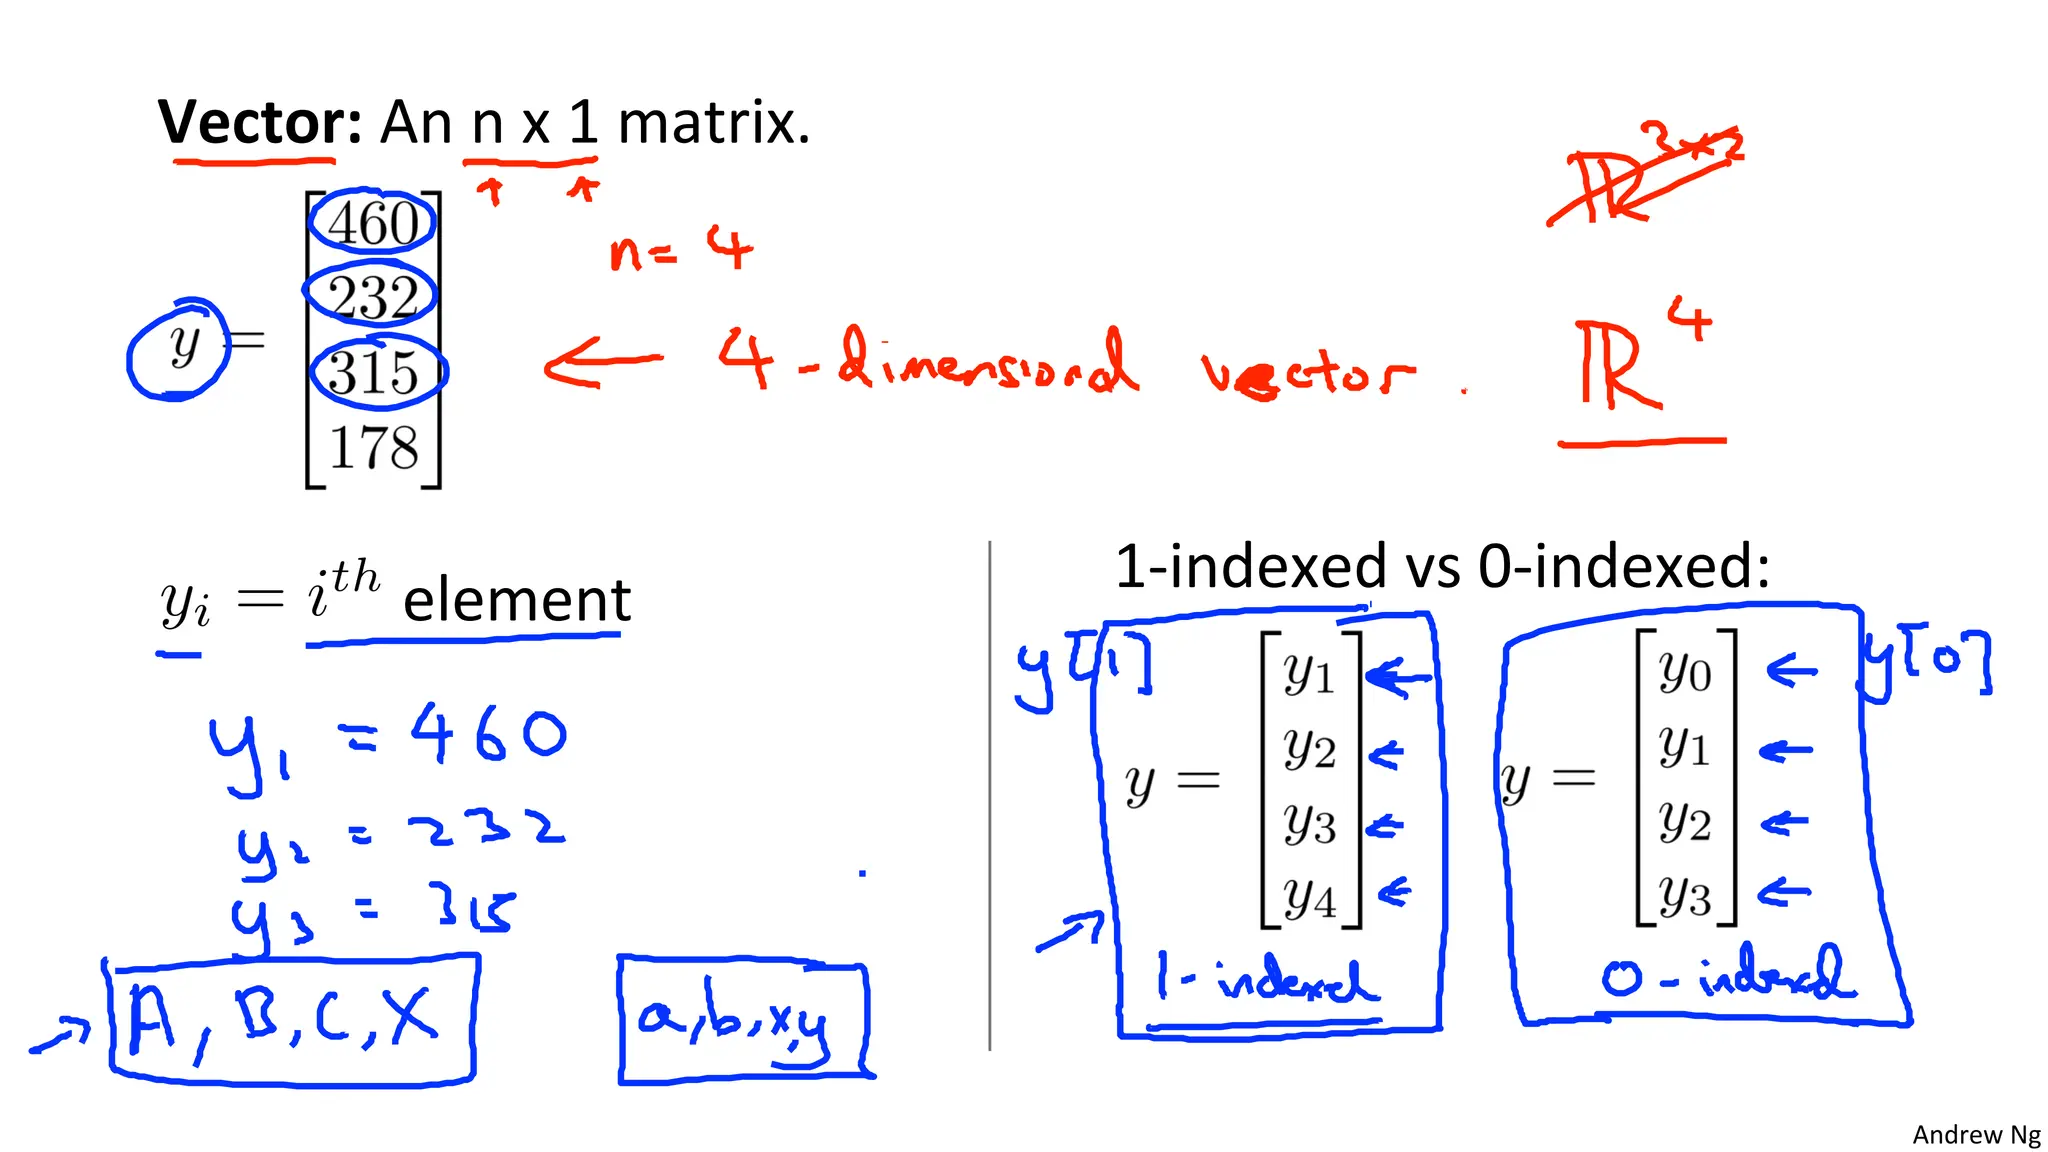 Vector: An n x 1 matrix.
ℝ^{3×2}
n = 4
y = [460
232
315
178]
← 4-dimensional vector. ℝ^4
y_i = i^{th} element
y_1 = 460
y_2 = 232
y_3 = 315
A, B, C, X
a, b, x, y
1-indexed vs 0-indexed:
y[1]
y = [y_1
y_2
y_3
y_4]
1-indexed
y[0]
y = [y_0
y_1
y_2
y_3]
0-indexed
Andrew Ng